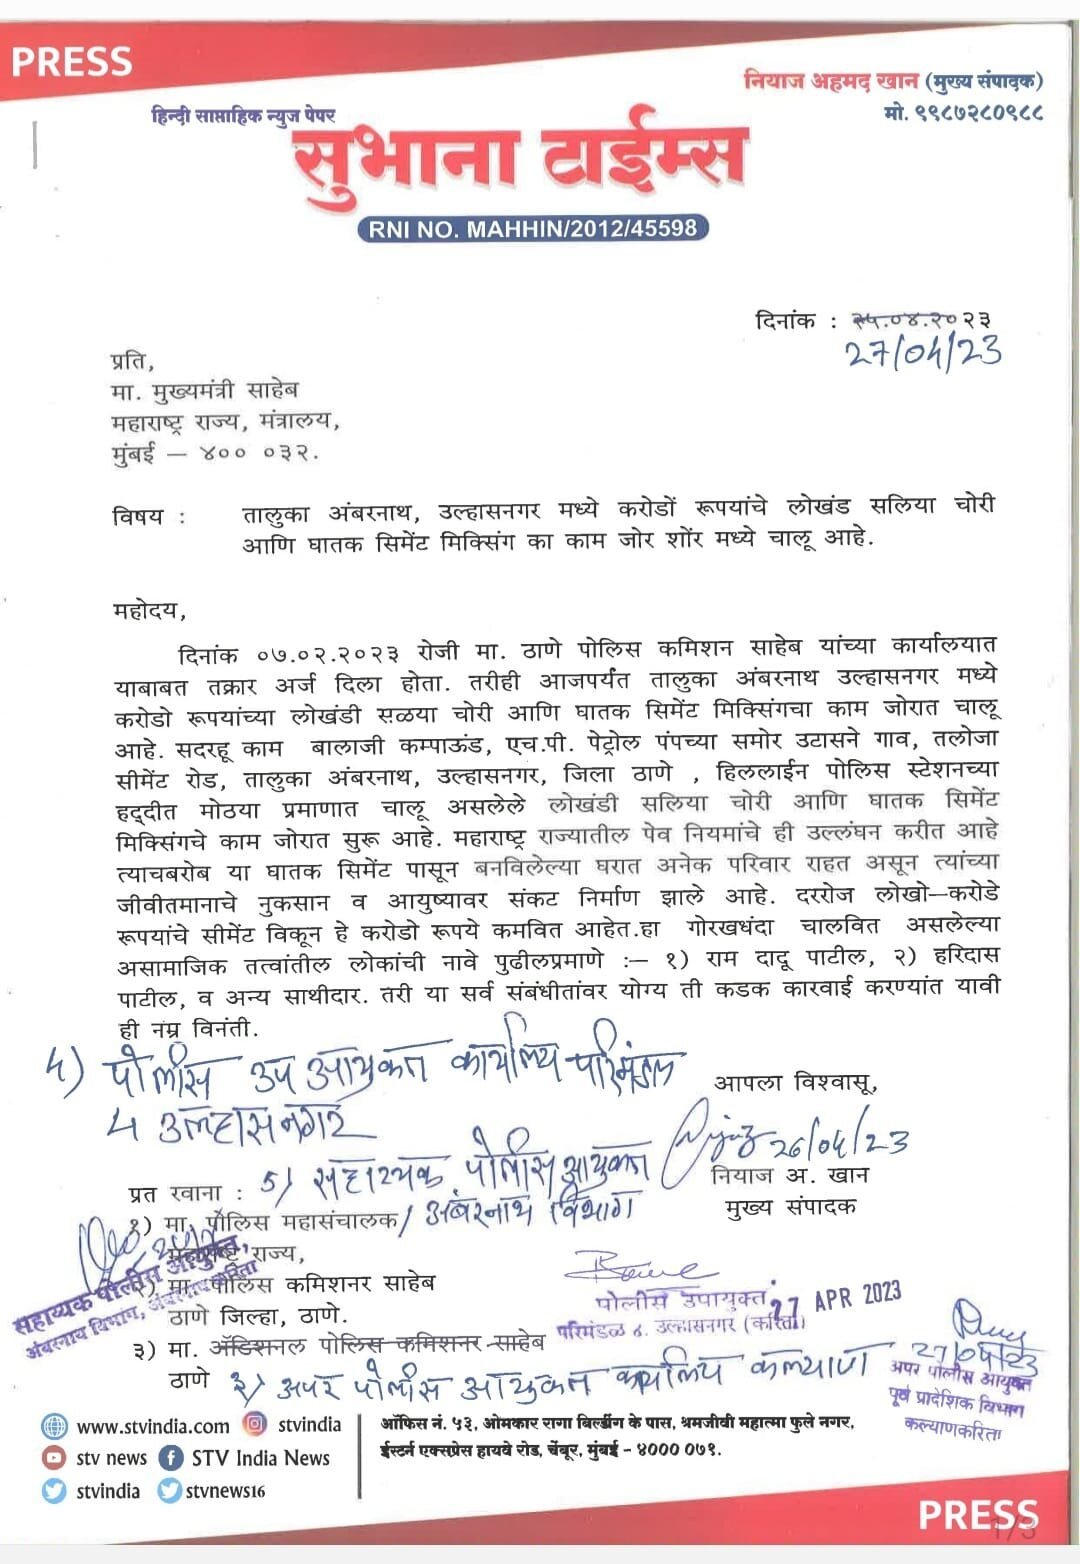 PRESS
नियाज अहमद खान (मुख्य संपादक)
मो. ९९८७२८०९८८
हिन्दी साप्ताहिक न्युज पेपर
सुभाना टाईम्स
RNI NO. MAHHIN/2012/45598
दिनांक : २५.०४.२०२३
27/04/23
प्रति,
मा. मुख्यमंत्री साहेब
महाराष्ट्र राज्य, मंत्रालय,
मुंबई – ४०० ०३२.
विषय : तालुका अंबरनाथ, उल्हासनगर मध्ये करोडों रूपयांचे लोखंड सलिया चोरी
आणि घातक सिमेंट मिक्सिंग का काम जोर शोंर मध्ये चालू आहे.
महोदय,
दिनांक ०७.०२.२०२३ रोजी मा. ठाणे पोलिस कमिशन साहेब यांच्या कार्यालयात
याबाबत तक्रार अर्ज दिला होता. तरीही आजपर्यंत तालुका अंबरनाथ उल्हासनगर मध्ये
करोडो रूपयांच्या लोखंडी सळया चोरी आणि घातक सिमेंट मिक्सिंगचा काम जोरात चालू
आहे. सदरहू काम बालाजी कम्पाऊंड, एच.पी. पेट्रोल पंपच्या समोर उटासने गाव, तलोजा
सीमेंट रोड, तालुका अंबरनाथ, उल्हासनगर, जिला ठाणे , हिललाईन पोलिस स्टेशनच्या
हद्दीत मोठया प्रमाणात चालू असलेले लोखंडी सलिया चोरी आणि घातक सिमेंट
मिक्सिंगचे काम जोरात सुरू आहे. महाराष्ट्र राज्यातील पेव नियमांचे ही उल्लंघन करीत आहे
त्याचबरोब या घातक सिमेंट पासून बनविलेल्या घरात अनेक परिवार राहत असून त्यांच्या
जीवीतमानाचे नुकसान व आयुष्यावर संकट निर्माण झाले आहे. दररोज लोखो–करोडे
रूपयांचे सीमेंट विकून हे करोडो रूपये कमवित आहेत.हा गोरखधंदा चालवित असलेल्या
असामाजिक तत्वांतील लोकांची नावे पुढीलप्रमाणे :– १) राम दादू पाटील, २) हरिदास
पाटील, व अन्य साथीदार. तरी या सर्व संबंधीतांवर योग्य ती कडक कारवाई करण्यांत यावी
ही नम्र विनंती.
४) पोलीस उप आयुक्त कार्यालय परिमंडल
4 उल्हासनगर
आपला विश्वासू,
26/04/23
नियाज अ. खान
मुख्य संपादक
प्रत रवाना : 5) सहाय्यक पोलीस आयुक्त
अंबरनाथ विभाग
१) मा. पोलिस महासंचालक/
महाराष्ट्र राज्य,
२) मा. पोलिस कमिशनर साहेब
ठाणे जिल्हा, ठाणे.
३) मा. ॲडिशनल पोलिस कमिशनर साहेब
ठाणे ३) अपर पोलीस आयुक्त कार्यालय कल्याण
सहाय्यक पोलीस आयुक्त,
अंबरनाथ विभाग, अंबरनाथ करिता
पोलीस उपायुक्त
27 APR 2023
परिमंडळ ४. उल्हासनगर (करिता)
27/04/23
अपर पोलीस आयुक्त
पूर्व प्रादेशिक विभाग
कल्याणकरिता
www.stvindia.com stvindia
stv news STV India News
stvindia stvnews16
ऑफिस नं. ५३, ओमकार रागा बिल्डींग के पास, श्रमजीवी महात्मा फुले नगर,
ईस्टर्न एक्सप्रेस हायवे रोड, चेंबूर, मुंबई - ४००० ०७१.
PRESS
1/3